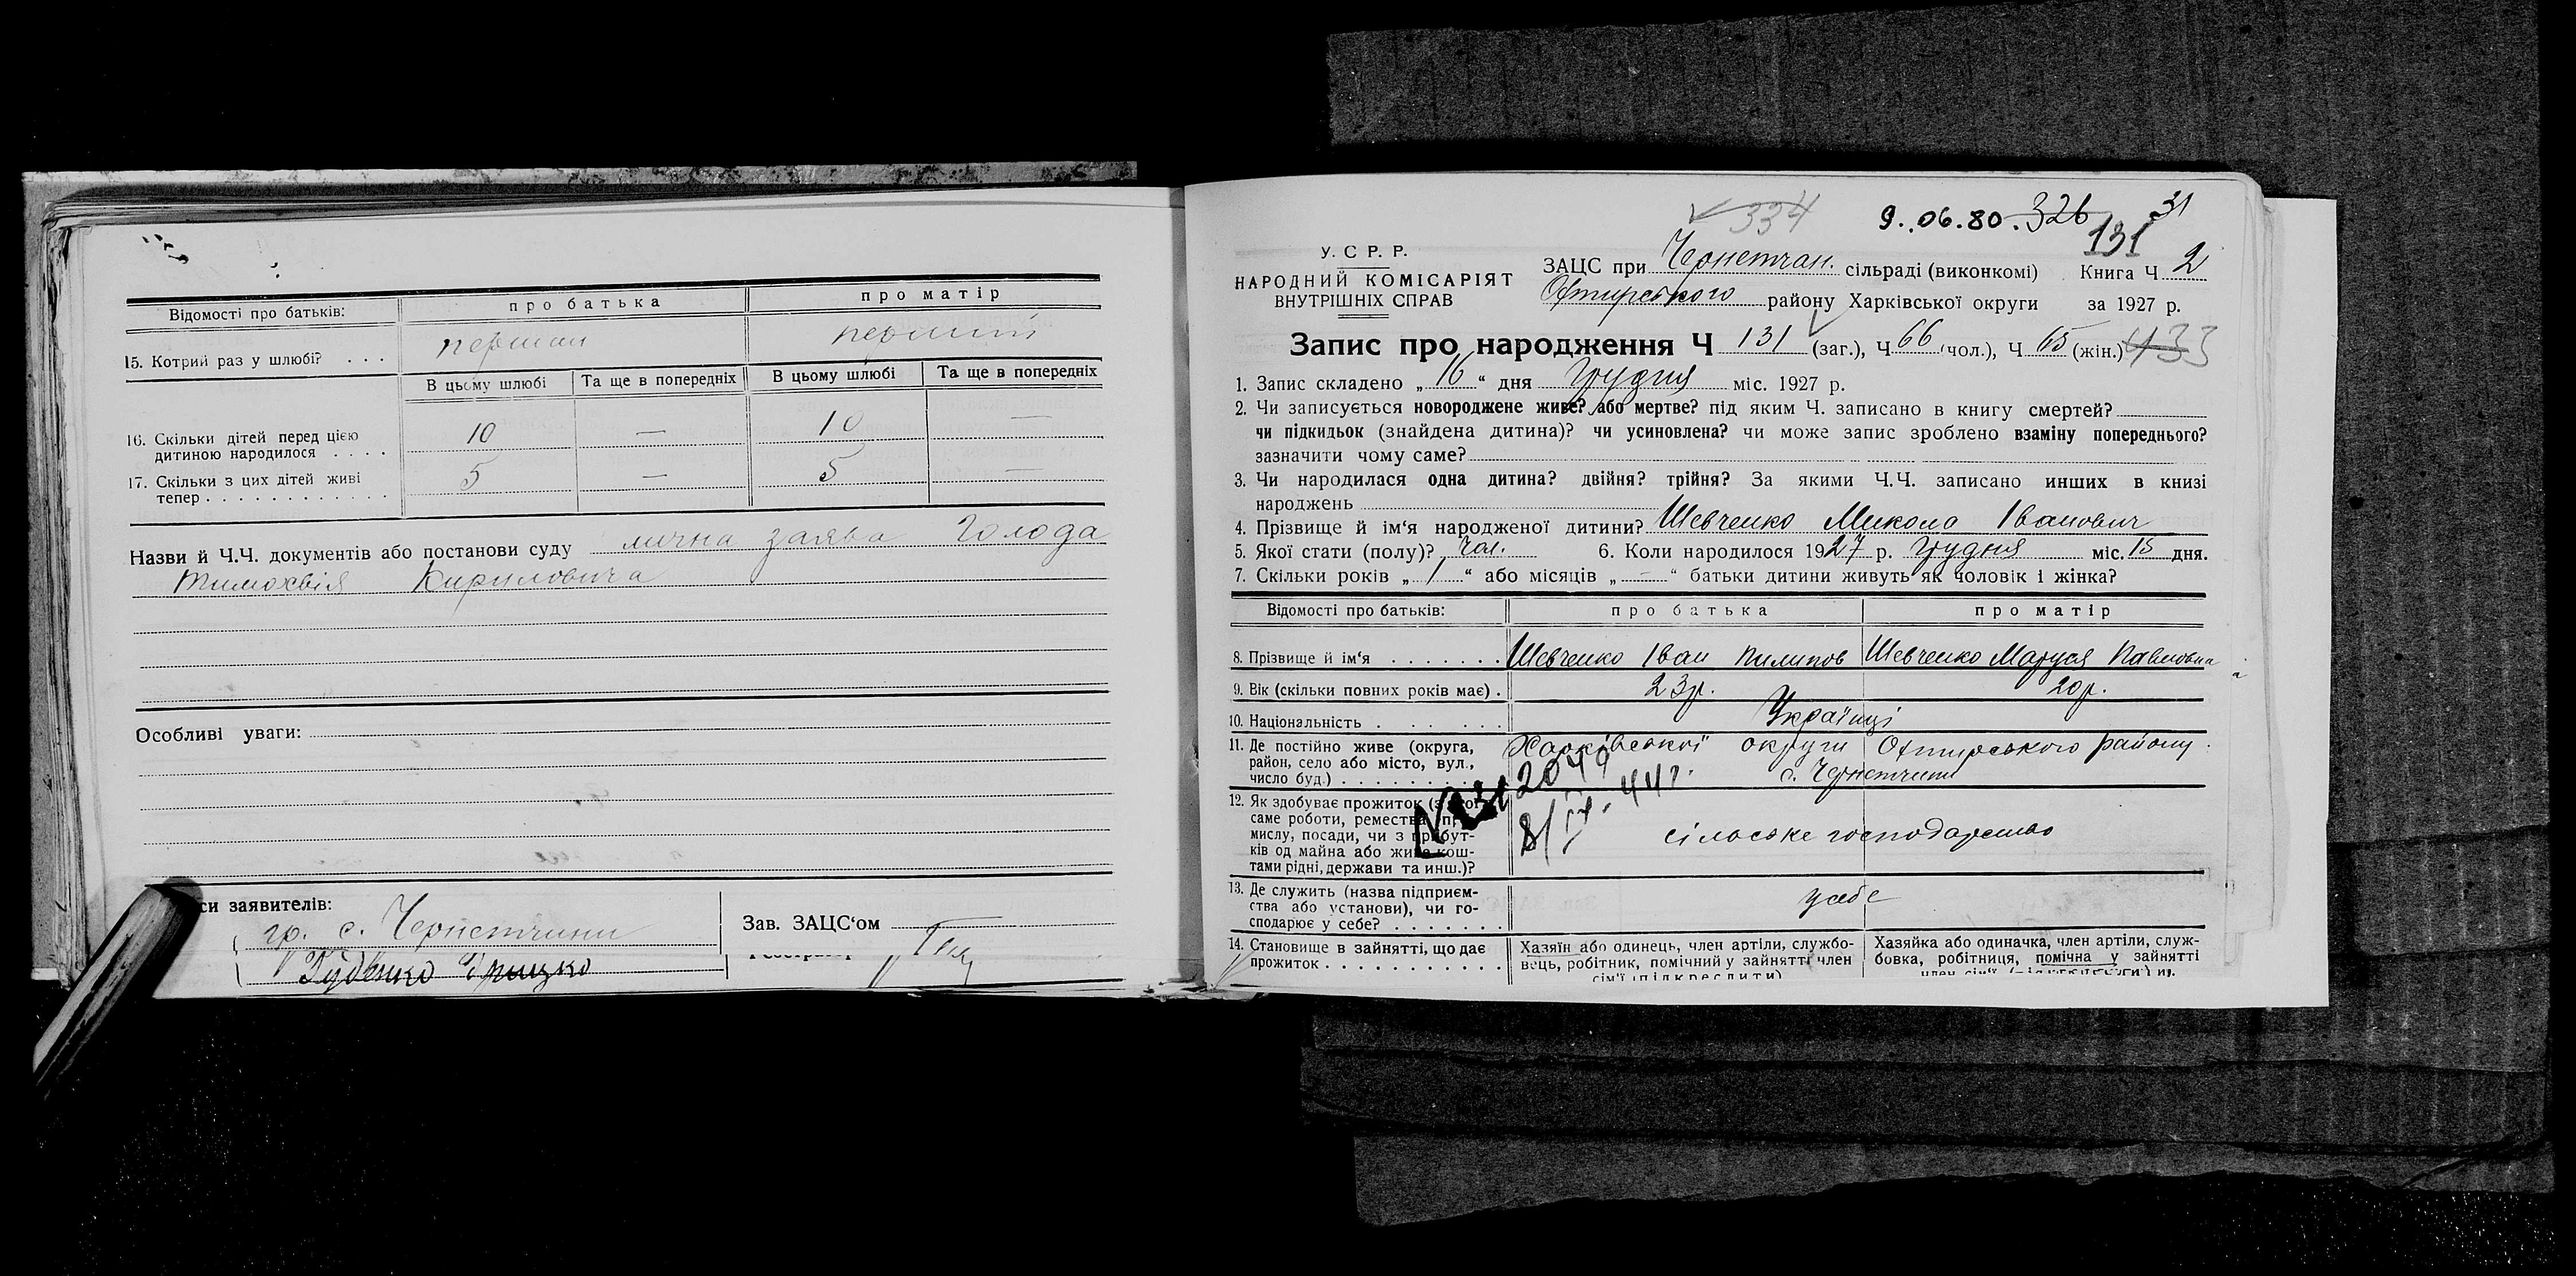 Відомості про батьків: про батька про матір
15. Котрий раз у шлюбі? . . . перший перший
В цьому шлюбі Та ще в попередніх В цьому шлюбі Та ще в попередніх
16. Скільки дітей перед цією
дитиною народилося . . . . 10 — 10 —
17. Скільки з цих дітей живі
тепер . . . . . . . . . . . . . 5 — 5 —
Назви й Ч.Ч. документів або постанови суду лична заява Голода
Тимохвія Кириловича
Особливі уваги:
си заявителів:
гр. с. Чернетчини
Зав. ЗАЦС'ом
Грицко
334 9.06.80. 326 31
131
У. С Р. Р.
НАРОДНИЙ КОМІСАРІЯТ
ВНУТРІШНІХ СПРАВ
ЗАЦС при Чернетчан. сільраді (виконкомі) Книга Ч 2
Охтирського району Харківської округи за 1927 р.
Запис про народження Ч 131 (заг.), Ч 66 (чол.), Ч 65 (жін.) 133
1. Запис складено „ 16 “ дня Грудня міс. 1927 р.
2. Чи записується новороджене живе? або мертве? під яким Ч. записано в книгу смертей?
чи підкидьок (знайдена дитина)? чи усиновлена? чи може запис зроблено взаміну попереднього?
зазначити чому саме?
3. Чи народилася одна дитина? двійня? трійня? За якими Ч.Ч. записано инших в книзі
народжень
4. Прізвище й ім'я народженої дитини? Шевченко Микола Іванович
5. Якої стати (полу)? чол. 6. Коли народилося 1927 р. Грудня міс. 15 дня.
7. Скільки років „ 1 “ або місяців „ — “ батьки дитини живуть як чоловік і жінка?
Відомості про батьків: про батька про матір
8. Прізвище й ім'я . . . . . . . Шевченко Іван Пилипов Шевченко Маруся Павловна
9. Вік (скільки повних років має) . 23р. 20р.
10. Національність . . . . . Українці
11. Де постійно живе (округа, Харківської округи Охтирського району
район, село або місто, вул.,
число буд.) . . . . . . . . . с. Чернетчини
№ 2044
8/IV. 44г.
12. Як здобуває прожиток (з якої
саме роботи, ремества, про-
мислу, посади, чи з прибут-
ків од майна або живе кош-
тами рідні, держави та инш.)? сільське господарство
13. Де служить (назва підприєм-
ства або установи), чи го-
сподарює у себе? . . . . . . . у себе
14. Становище в зайнятті, що дає
прожиток . . . . . . . . . . .
Хазяїн або одинець, член артіли, службо-
вець, робітник, помічний у зайнятті член
сім'ї (підкреслити)
Хазяйка або одиначка, член артіли, служ-
бовка, робітниця, помічна у зайнятті